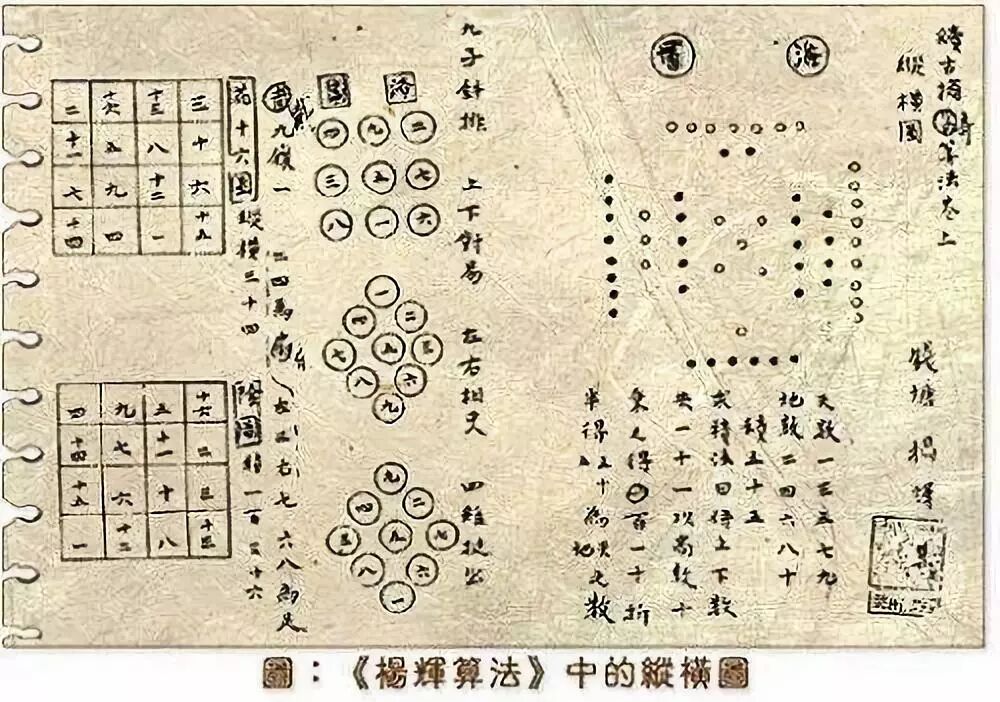 續古摘奇算法卷上
縱橫圖
錢塘 楊輝
河圖
天數一三五七九
地數二四六八十
積五十五
求積法曰併上下數
共一十一以高數十
乘之得百一十折
半得五十五為天地之數
九子斜排 上下對易 左右相更 四維挺出
洛書
四 九 二
三 五 七
八 一 六
一
四 二
七 五 三
八 六
九
九
四 二
三 五 七
八 六
一
戴九履一 二四為肩 左三右七 六八為足
花十六圖 縱橫三十四
二 十六 十三 三
十一 五 八 十
七 九 十二 六
十四 四 一 十五
陰圖 積一百三十六
四 九 五 十六
十四 七 十一 二
十五 六 十 三
一 十二 八 十三
圖：《楊輝算法》中的縱橫圖